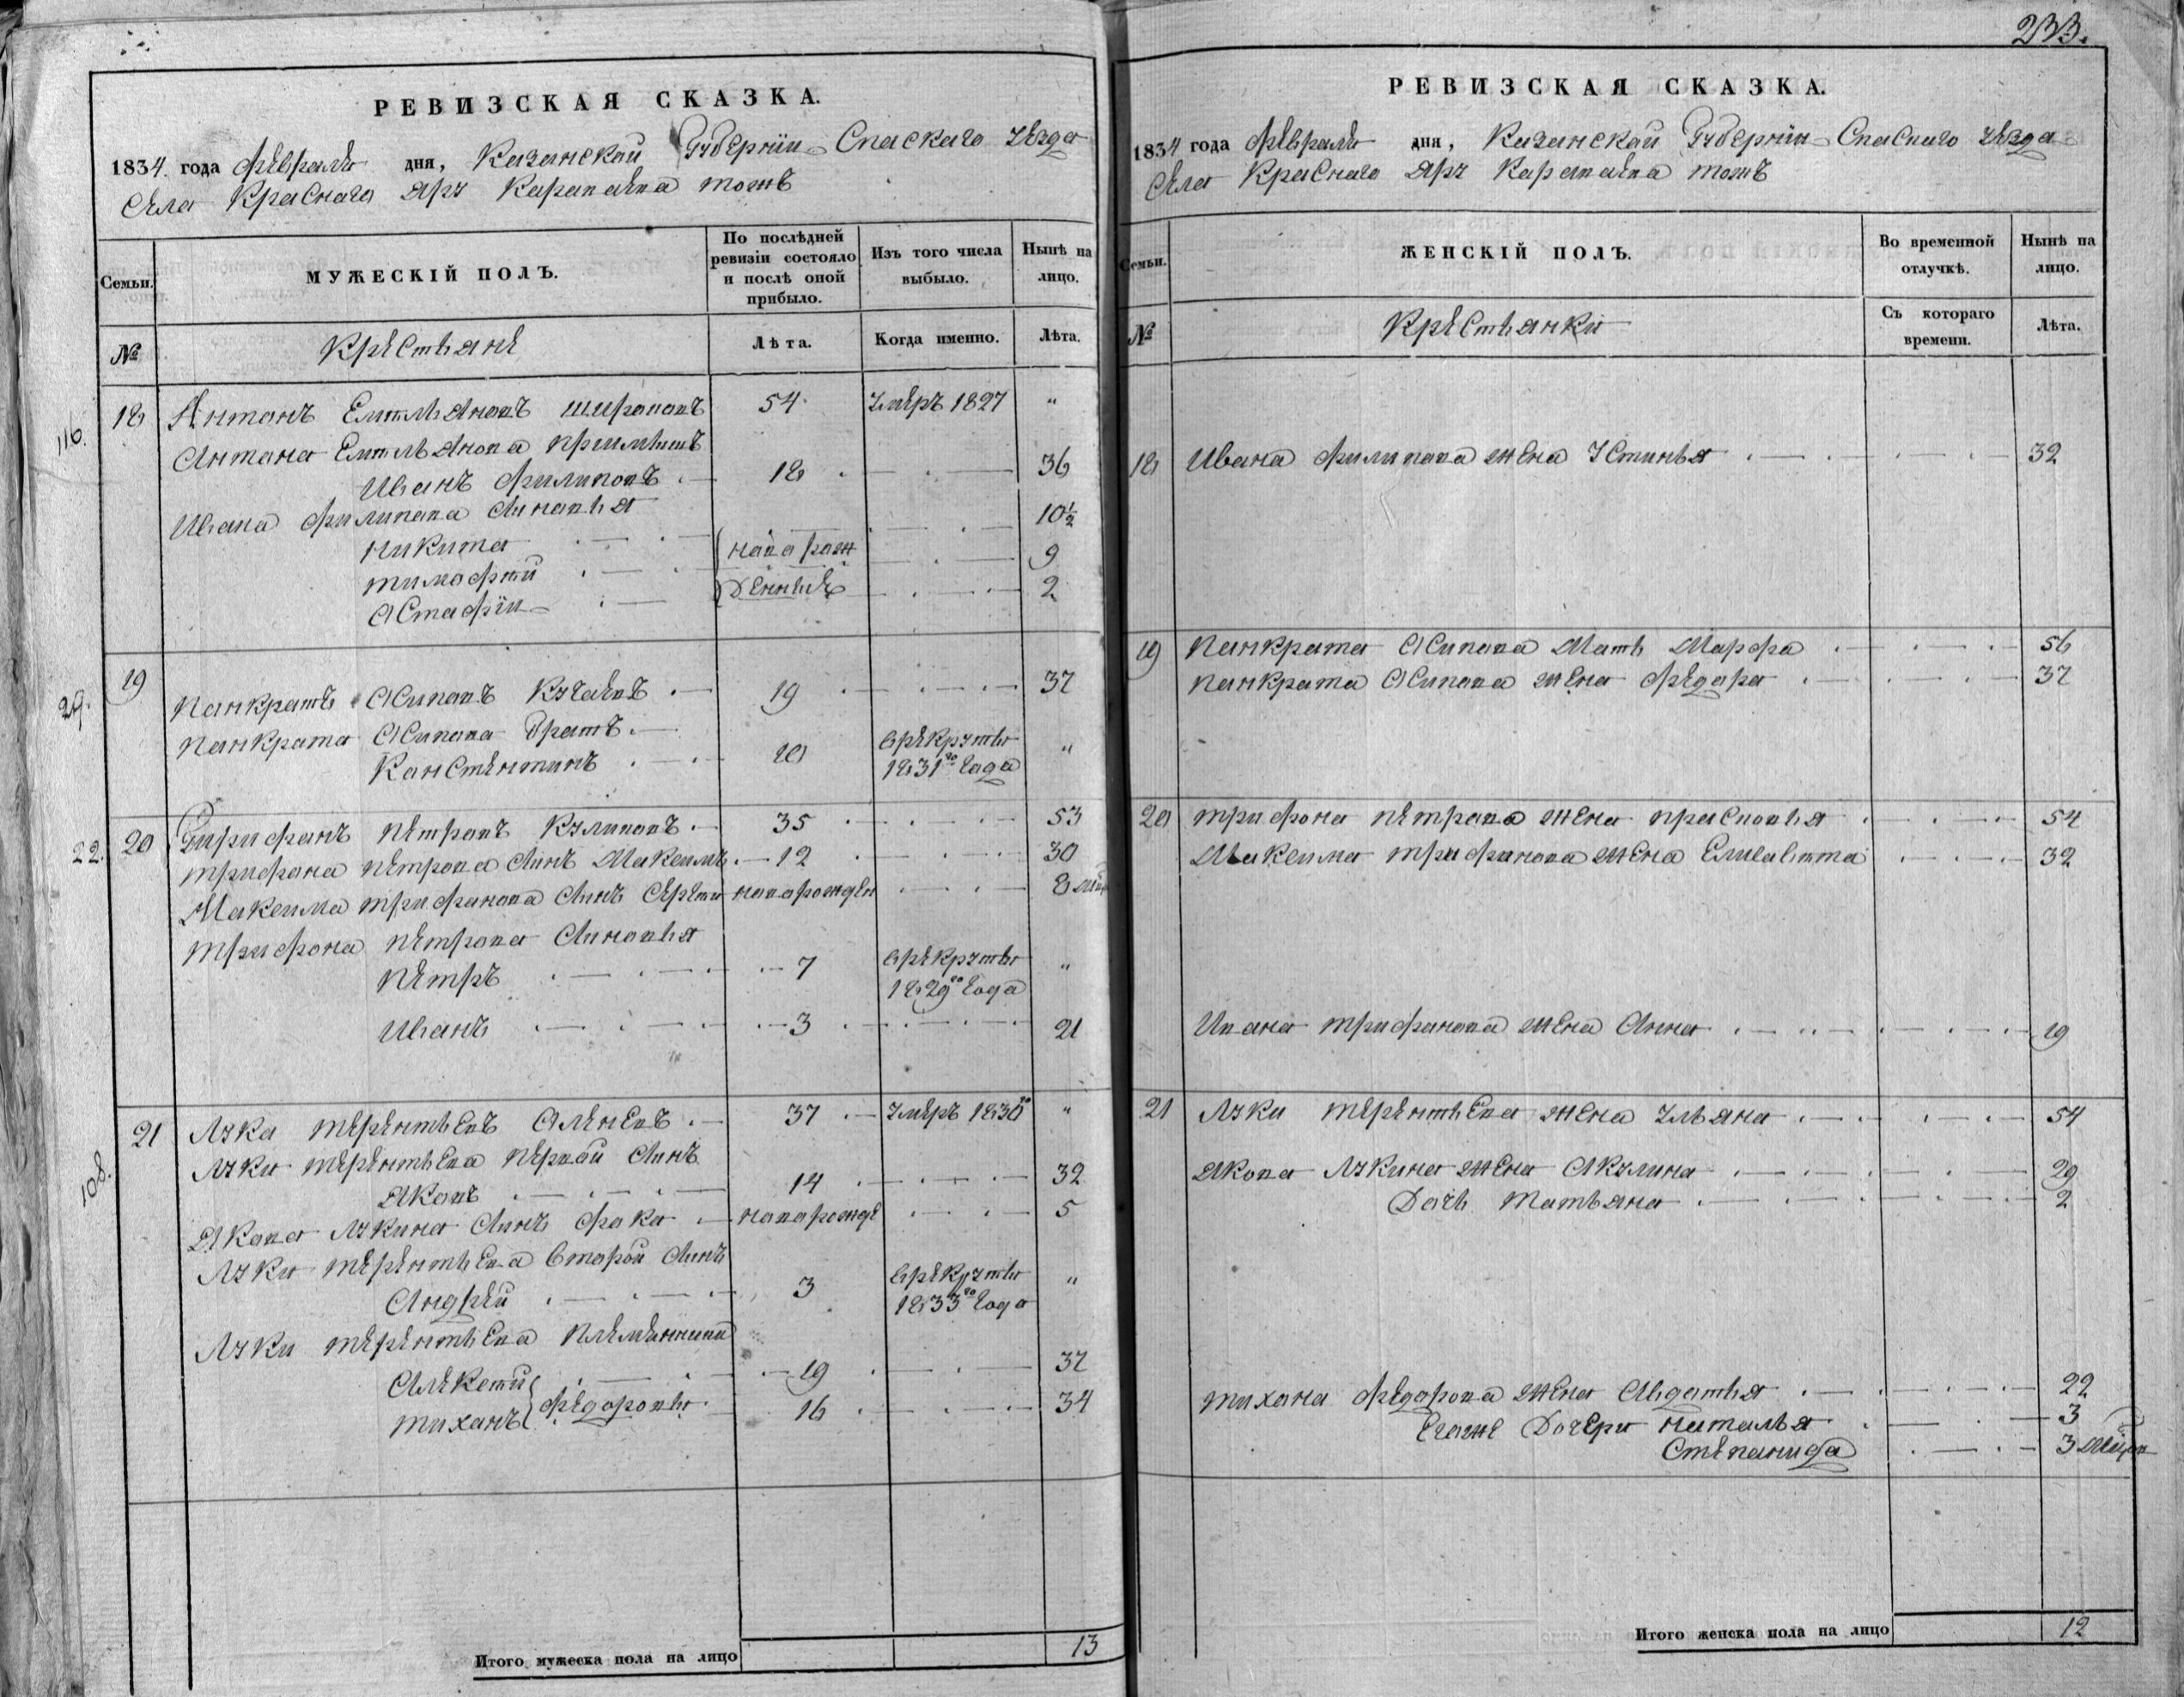 РЕВИЗСКАЯ СКАЗКА.
1834 года февраля дня, Казанской Губернїи Спаскаго уезда
Села Краснаго Яру Карапаева тожъ
Семьи. МУЖЕСКІЙ ПОЛЪ. По послѣдней ревизіи состояло и послѣ оной прибыло. Изъ того числа выбыло. Нынѣ на лицо.
№ Крестьяне Лѣта. Когда именно. Лѣта.
116.
18 Антонъ Емельановъ 54 умеръ 1827 "
Антона Емельанова приимышъ
Иванъ Филиповъ 18 36
Ивана Филипова сыновья
Никита новорож 10½
Тимофей 9
Остафїи денныя 2
29.
19 Панкратъ Осиповъ 19 37
Панкрата Осипова братъ
Констентинъ 10 в рекруты 1831го года "
22.
20 Трифонъ Петровъ Куликовъ 35 53
Трифона Петрова сынъ Максимъ 12 30
Максима Трифонова сынъ Сергей новорожден 8 мѣсяц
Трифона Петрова сыновья
Петръ 7 в рекруты 1829го года "
Иванъ 3 21
108.
21 Лука Терентьевъ 37 умеръ 1830го "
Луки Терентьева первой сынъ
Яковъ 14 32
Якова Лукина сынъ Фока новорожде 5
Луки Терентьева второй сынъ
Андрей 3 в рекруты 1833го года "
Луки Терентьева племянники
Алексей 19 37
Тихонъ } Федоровы 16 34
Итого мужеска пола на лицо 13
233.
РЕВИЗСКАЯ СКАЗКА.
1834 года февраля дня, Казанской Губернїи Спаскаго уезда
Села Краснаго Яру Карапаева тожъ
Семьи. ЖЕНСКІЙ ПОЛЪ. Во временной отлучкѣ. Нынѣ на лицо.
№ Крестьянки Съ котораго времени. Лѣта.
18 Ивана Филипова жена Устинья 32
19 Панкрата Осипова мать Марфа 56
Панкрата Осипова жена Федора 37
20 Трифона Петрова жена Прасковья 54
Максима Трифонова жена Елисавета 32
Ивана Трифонова жена Анна 19
21 Луки Терентьева жена Ульяна 54
Якова Лукина жена Акулина 29
Дочь Татьяна 2
Тихона Федорова жена Авдатья 22
Егоже дочери Наталья 3
Степанида 3 мѣсяц
Итого женска пола на лицо 12